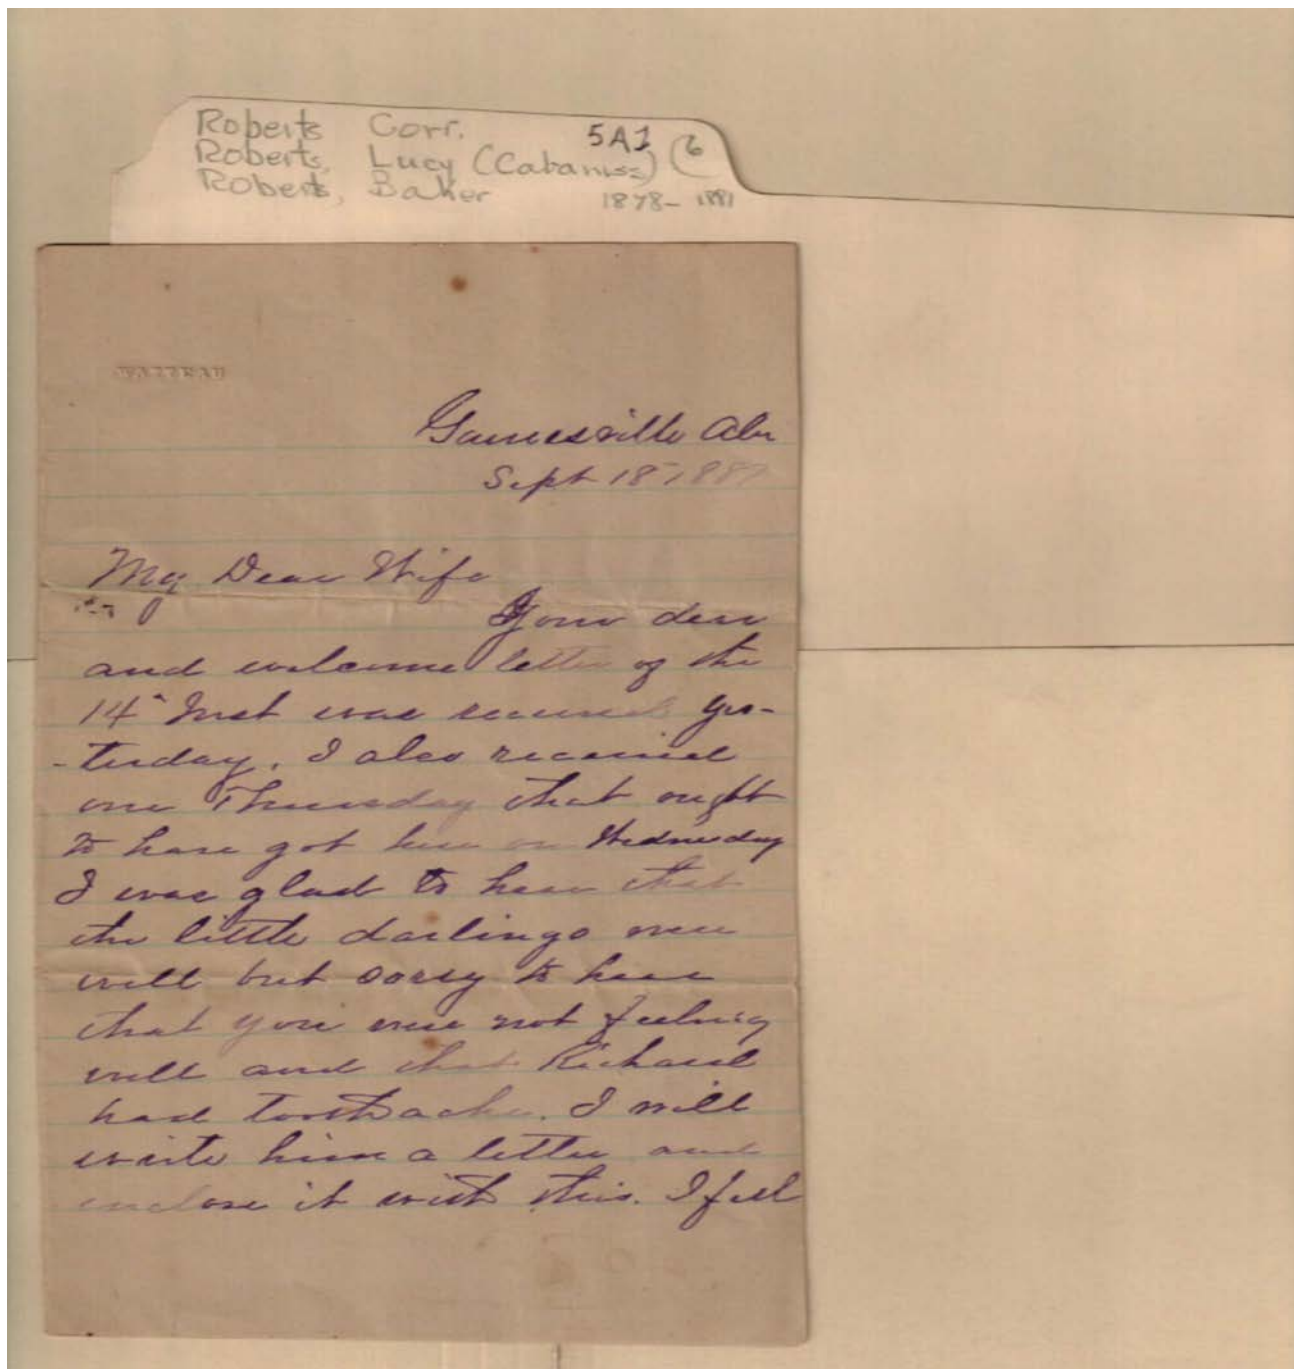 Roberts Corr. 5A1 (6
Roberts, Lucy (Cabaniss)
Roberts, Baker 1878-1887
Gainesville Ala
Sept 18 1887
My Dear Wife
Your dear
and welcome letter of the
14" Inst was received yes-
-terday. I also received
one Thursday that ought
to have got here on Wednesday
I was glad to hear that
the little darlings were
well but sorry to hear
that you were not feeling
well and that Richard
had toothache. I will
write him a letter and
enclose it with this. I feel